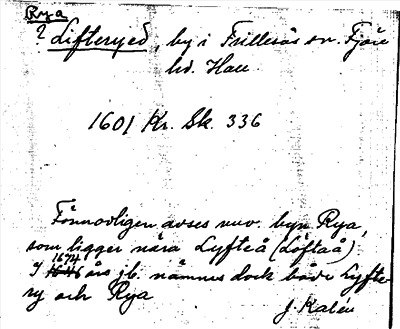 Rya
? Lifteryed, by i Frillesås sn. Fjäre
hd. Hall.
1601 Kr. Sk. 336
Förmodligen avses nuv. byn Rya,
som ligger nära Lyfteå (Löftaå)
1674
I 1646 års jb. nämnes dock både Lyfte-
ry och Rya
J. Kalén